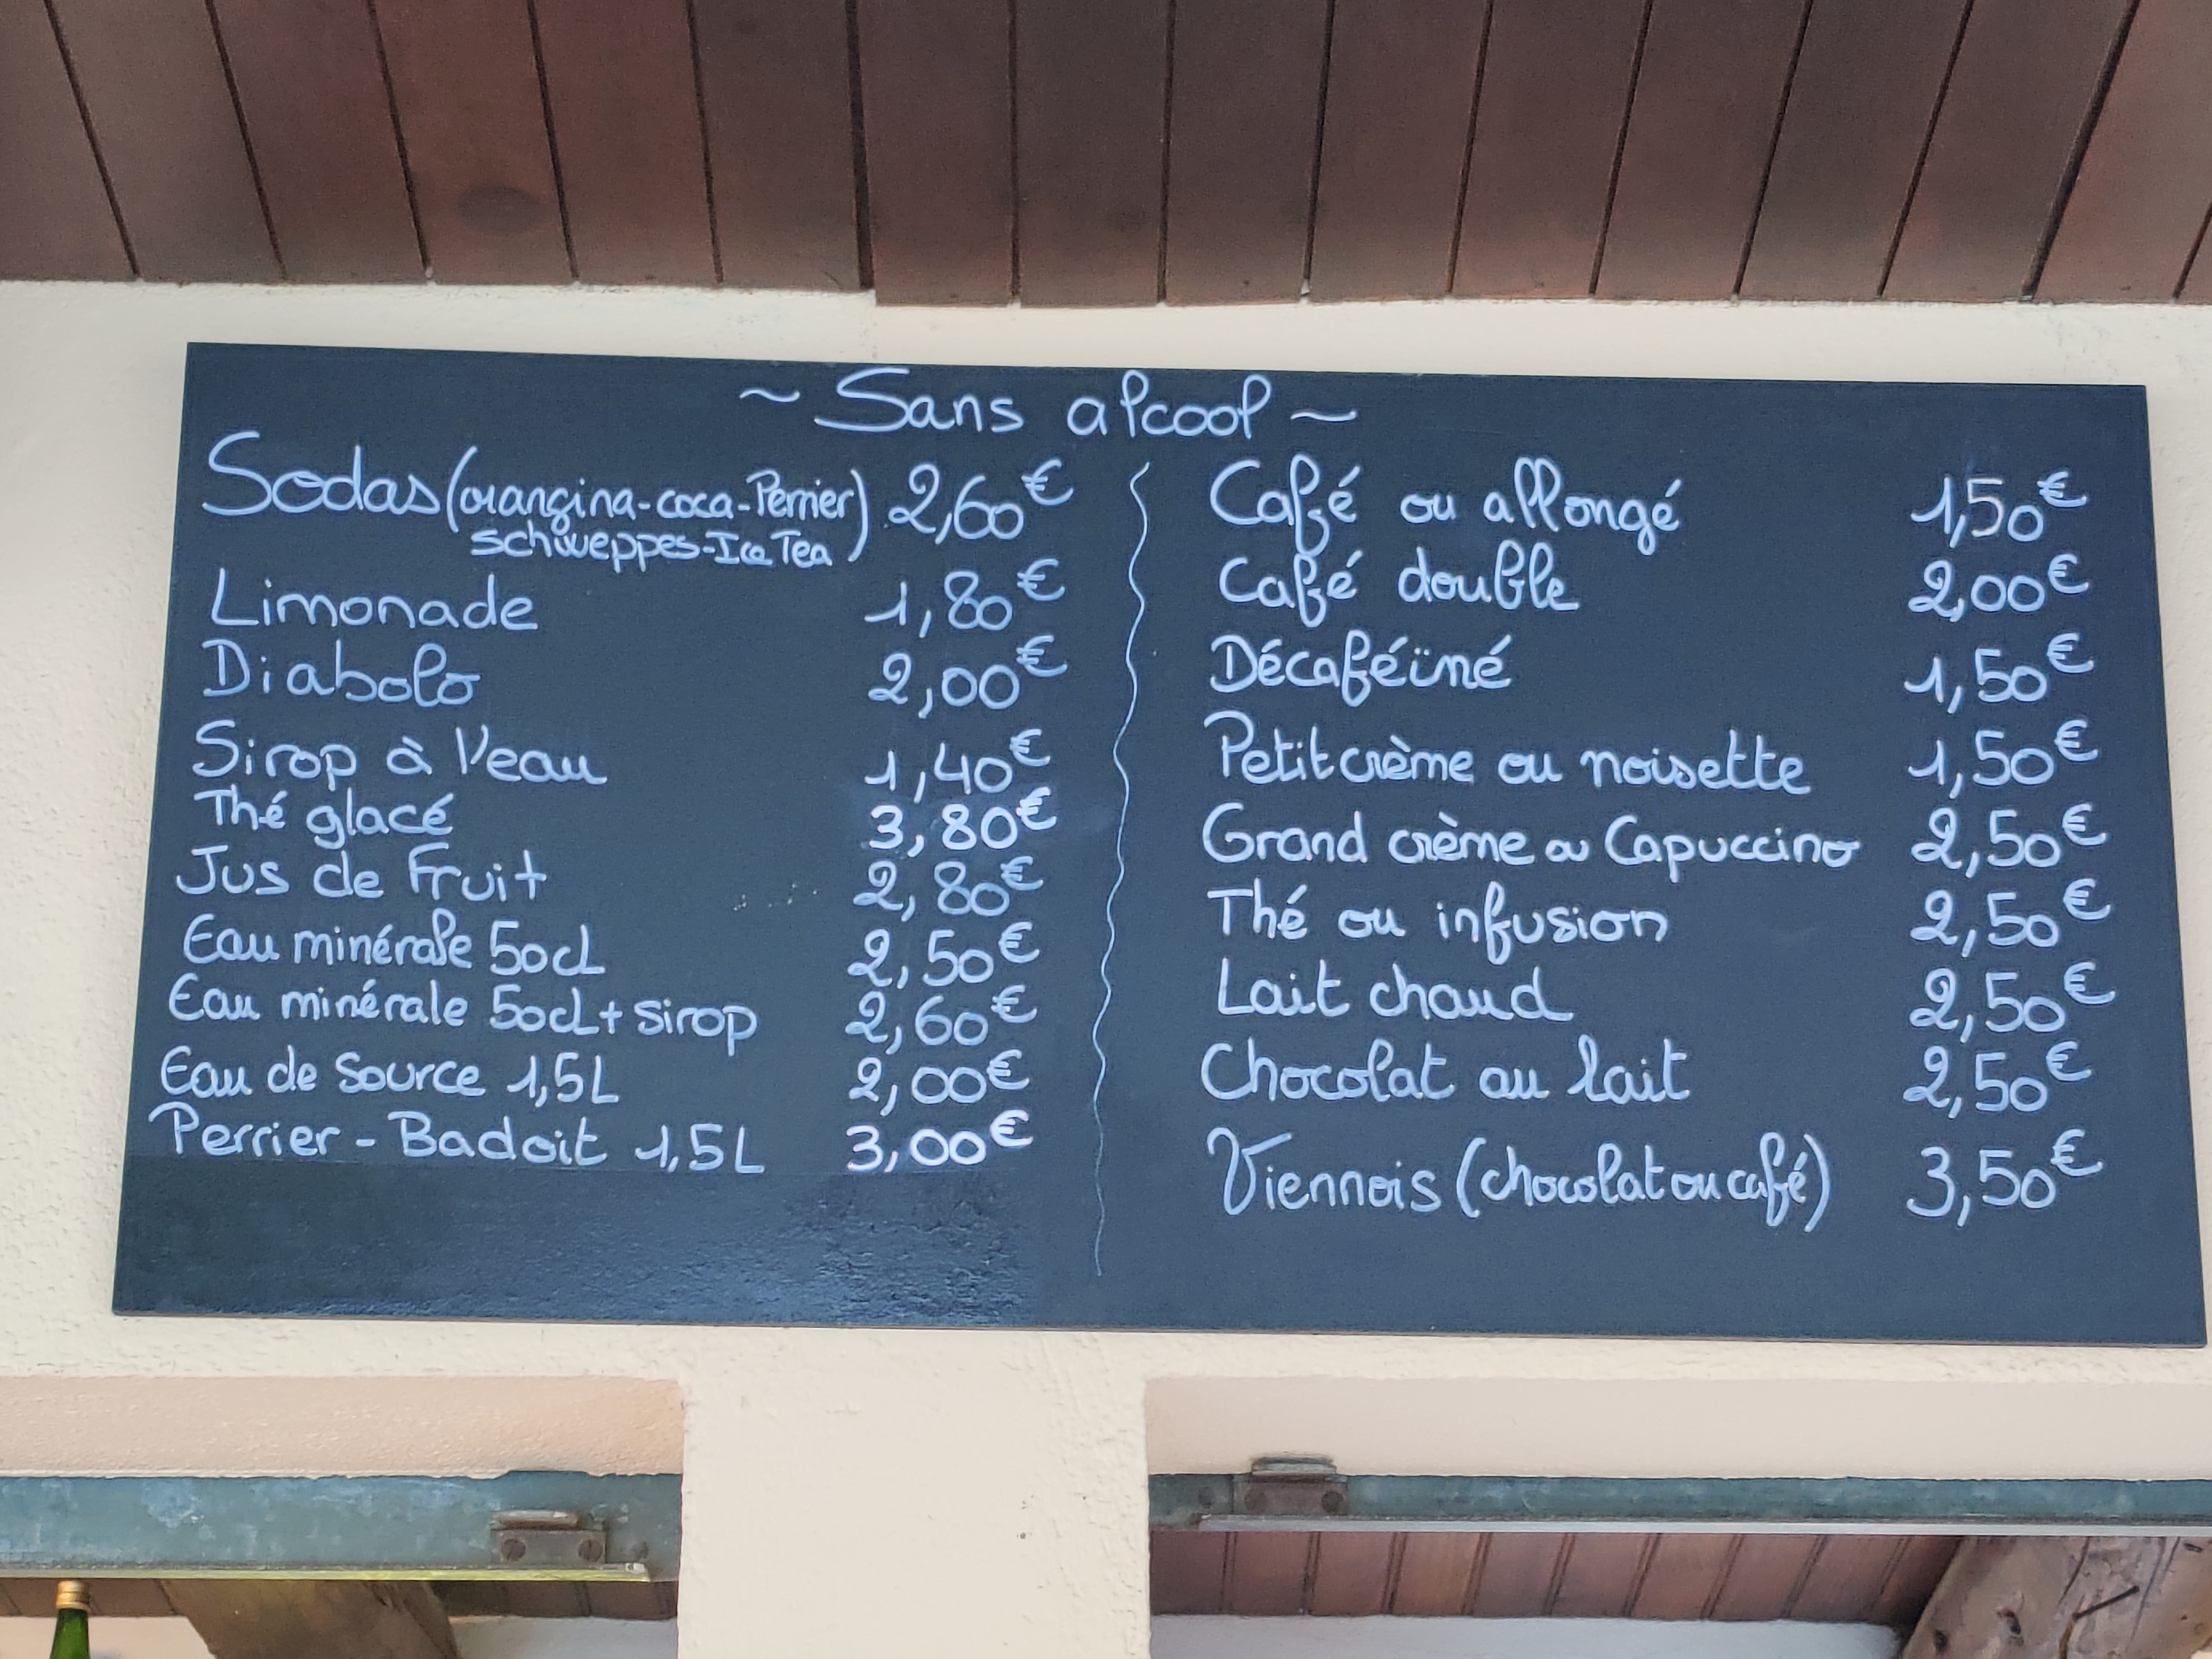 ~ Sans alcool ~
Sodas (orangina-coca-Perrier) 2,60€
schweppes-Ice Tea
Limonade 1,80€
Diabolo 2,00€
Sirop à l'eau 1,40€
Thé glacé 3,80€
Jus de Fruit 2,80€
Eau minérale 50cl 2,50€
Eau minérale 50cl + sirop 2,60€
Eau de Source 1,5L 2,00€
Perrier - Badoit 1,5L 3,00€
Café ou allongé 1,50€
Café double 2,00€
Décaféïné 1,50€
Petit crème ou noisette 1,50€
Grand crème ou Capuccino 2,50€
Thé ou infusion 2,50€
Lait chaud 2,50€
Chocolat au lait 2,50€
Viennois (chocolat ou café) 3,50€